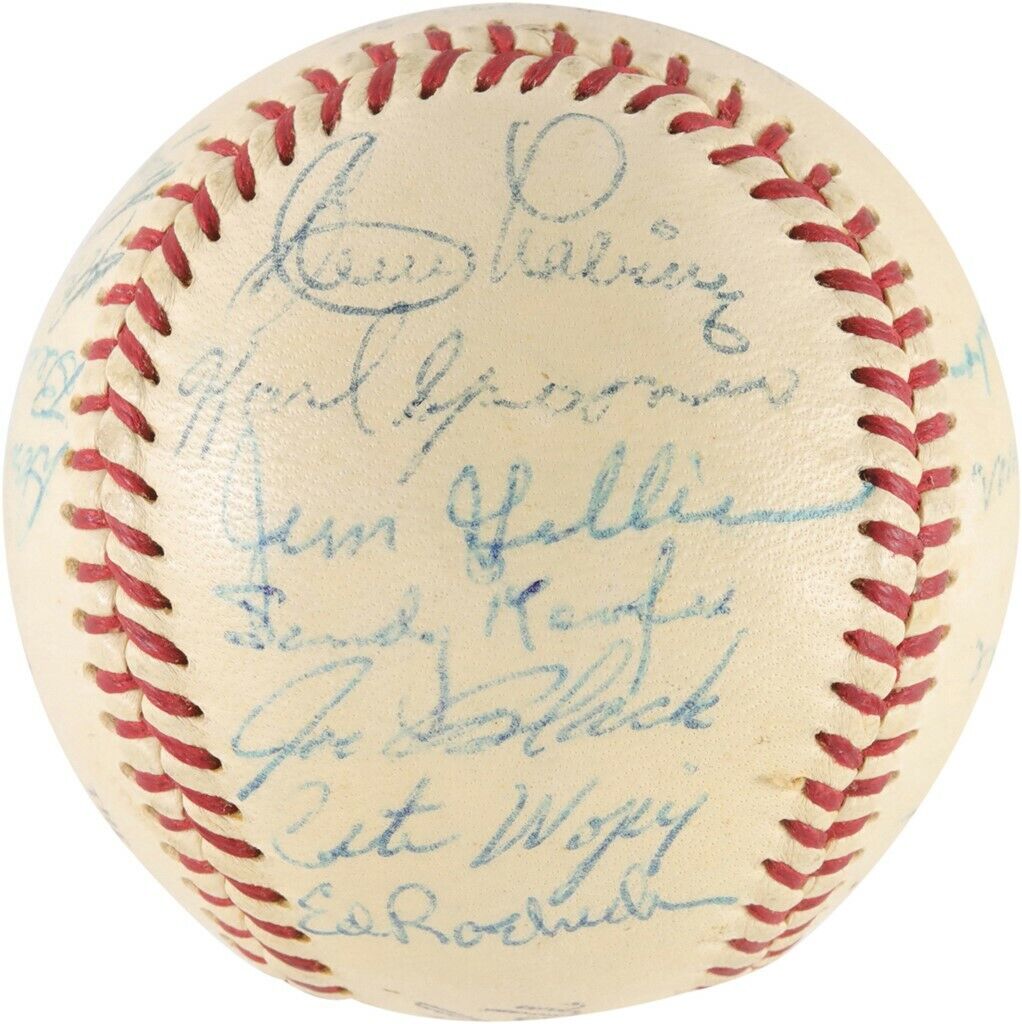 Clem Labine
Karl Spooner
Jim Gilliam
Sandy Koufax
Joe Black
Pete Wojey
Ed Roebuck